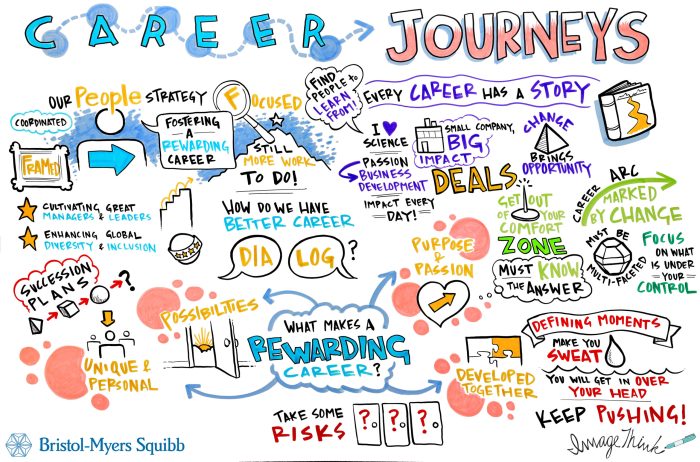 CAREER JOURNEYS
OUR People STRATEGY FOCUSED
COORDINATED
FRAMED
FOSTERING
A
REWARDING
CAREER
STILL
MORE WORK
TO DO!
CULTIVATING GREAT
MANAGERS & LEADERS
ENHANCING GLOBAL
DIVERSITY & INCLUSION
HOW DO WE HAVE
BETTER CAREER
DIA LOG?
FIND
PEOPLE to
LEARN
FROM!
EVERY CAREER HAS A STORY
I ♥
SCIENCE
PASSION
BUSINESS
DEVELOPMENT
IMPACT EVERY
DAY!
SMALL COMPANY,
BIG
IMPACT
DEALS
CHANGE
BRINGS
OPPORTUNITY
GET OUT
OF YOUR
COMFORT
ZONE
MUST KNOW
THE ANSWER
CAREER ARC
MARKED
BY CHANGE
MUST BE
MULTI-FACETED
FOCUS
ON WHAT
IS UNDER
YOUR
CONTROL
SUCCESSION
PLANS
?
UNIQUE &
PERSONAL
POSSIBILITIES
WHAT MAKES A
REWARDING
CAREER?
PURPOSE
& PASSION
DEVELOPED
TOGETHER
TAKE SOME
RISKS
? ? ?
DEFINING MOMENTS
MAKE YOU
SWEAT
YOU WILL GET IN OVER
YOUR HEAD
KEEP PUSHING!
Bristol-Myers Squibb
ImageThink